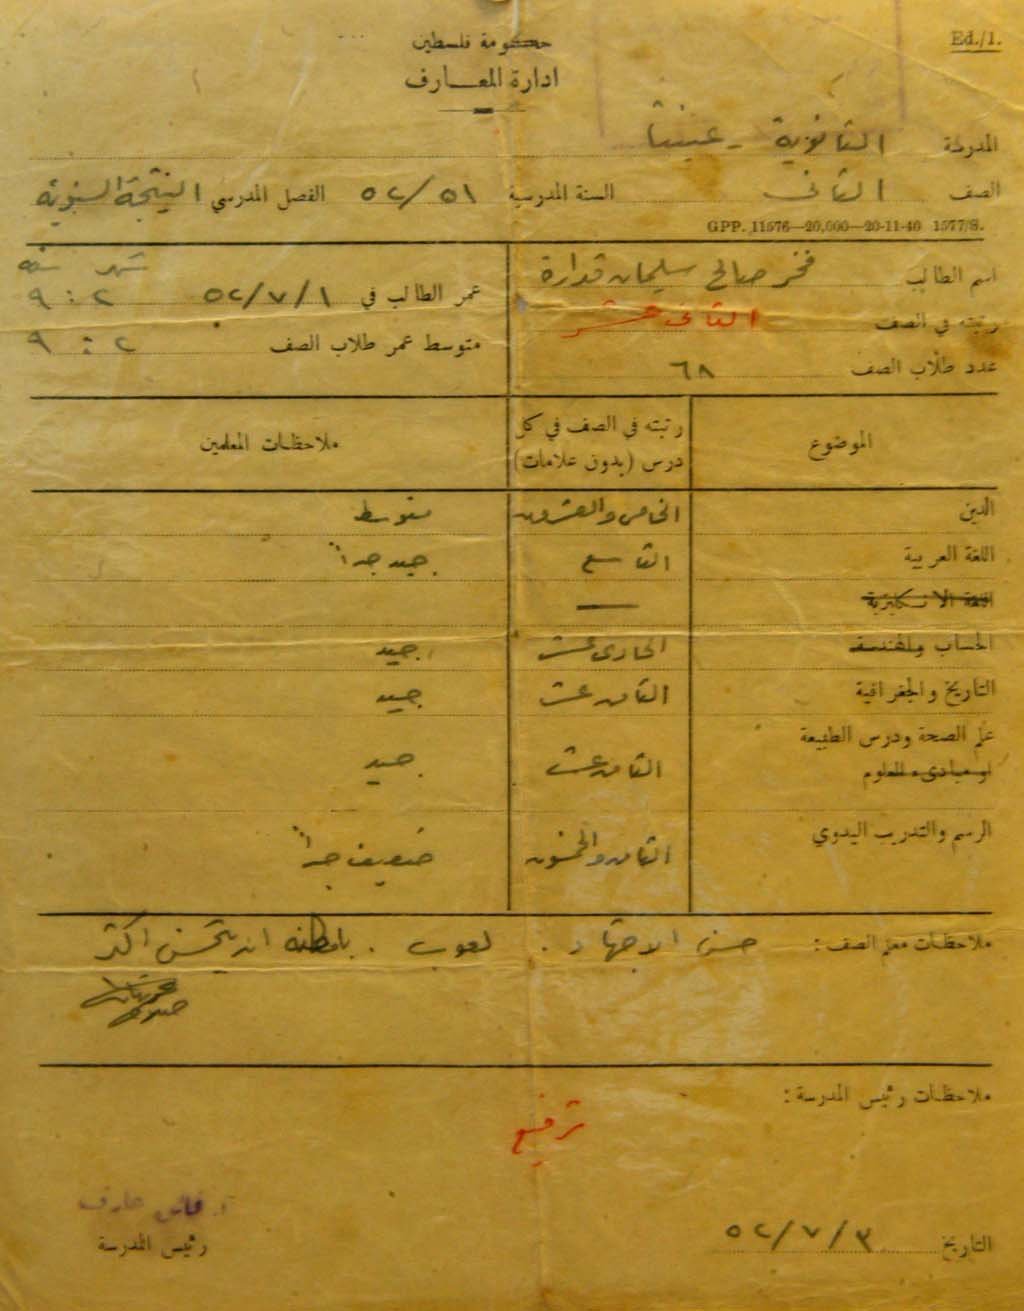 Ed./1.
حكومة فلسطين
ادارة المعارف
المدرسة الثانوية - عنبتا
الصف الثاني السنة المدرسية ٥٢/٥١ الفصل المدرسي النتيجة السنوية
GPP. 11576—20,000—20-11-40 1577/S.
اسم الطالب فخر صالح سليمان قدارة
شهر سنة
عمر الطالب في ٥٢/٧/١ ٢ : ٩
رتبته في الصف الثاني عشر
متوسط عمر طلاب الصف ٢ : ٩
عدد طلاب الصف ٦٨
الموضوع رتبته في الصف في كل درس (بدون علامات) ملاحظات المعلمين
الدين الخامس والعشرون متوسط
اللغة العربية التاسع جيد جداً
اللغة الانكليزية —
الحساب والهندسة الحادي عشر جيد
التاريخ والجغرافية الثامن عشر جيد
علم الصحة ودرس الطبيعة
او مبادىء العلوم الثامن عشر جيد
الرسم والتدريب اليدوي الثامن والخمسون ضعيف جداً
ملاحظات معلم الصف : حسن الاجتهاد . لعوب . بامكانه ان يتحسن اكثر
ملاحظات رئيس المدرسة :
ترفيع
التاريخ ٥٢/٧/٣
عارف
رئيس المدرسة